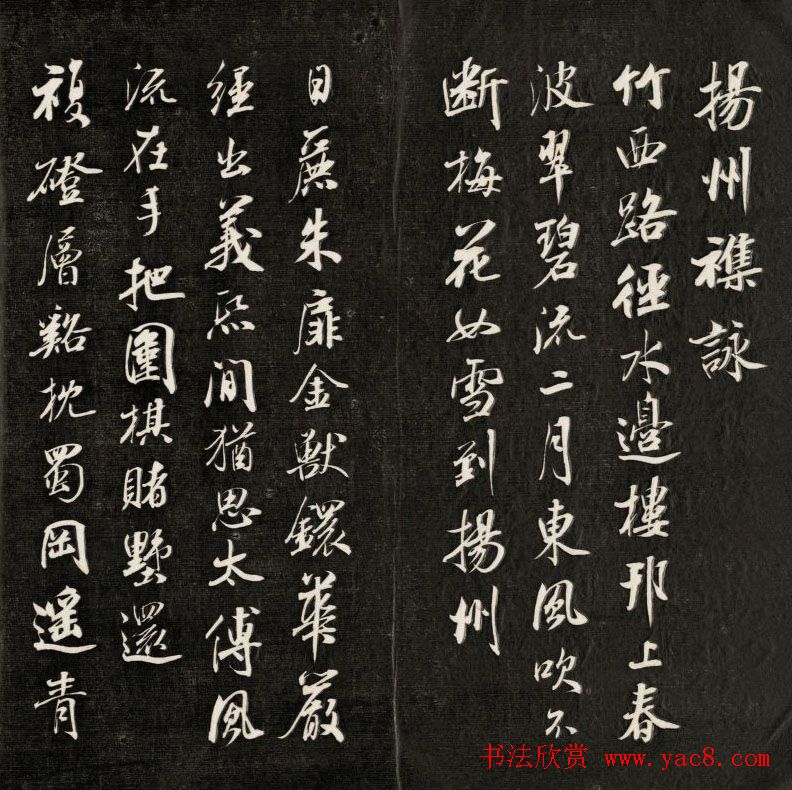 揚州襍詠
竹西路徑水邊樓邗上春
波翠碧流二月東風吹不
断梅花如雪到揚州
日麗朱扉金獸鐶華嚴
經出義熙間猶思太傅風
流在手把圍棋賭墅還
複磴層谿枕蜀岡遥青
书法欣赏 www.yac8.com